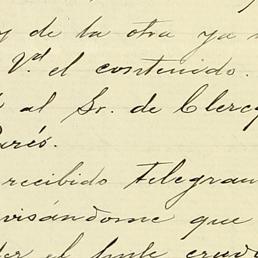 y de la otra ya
Vd. el contenido.
al Sr. de Clercq
Parés.
recibido telegram
visándome que
el